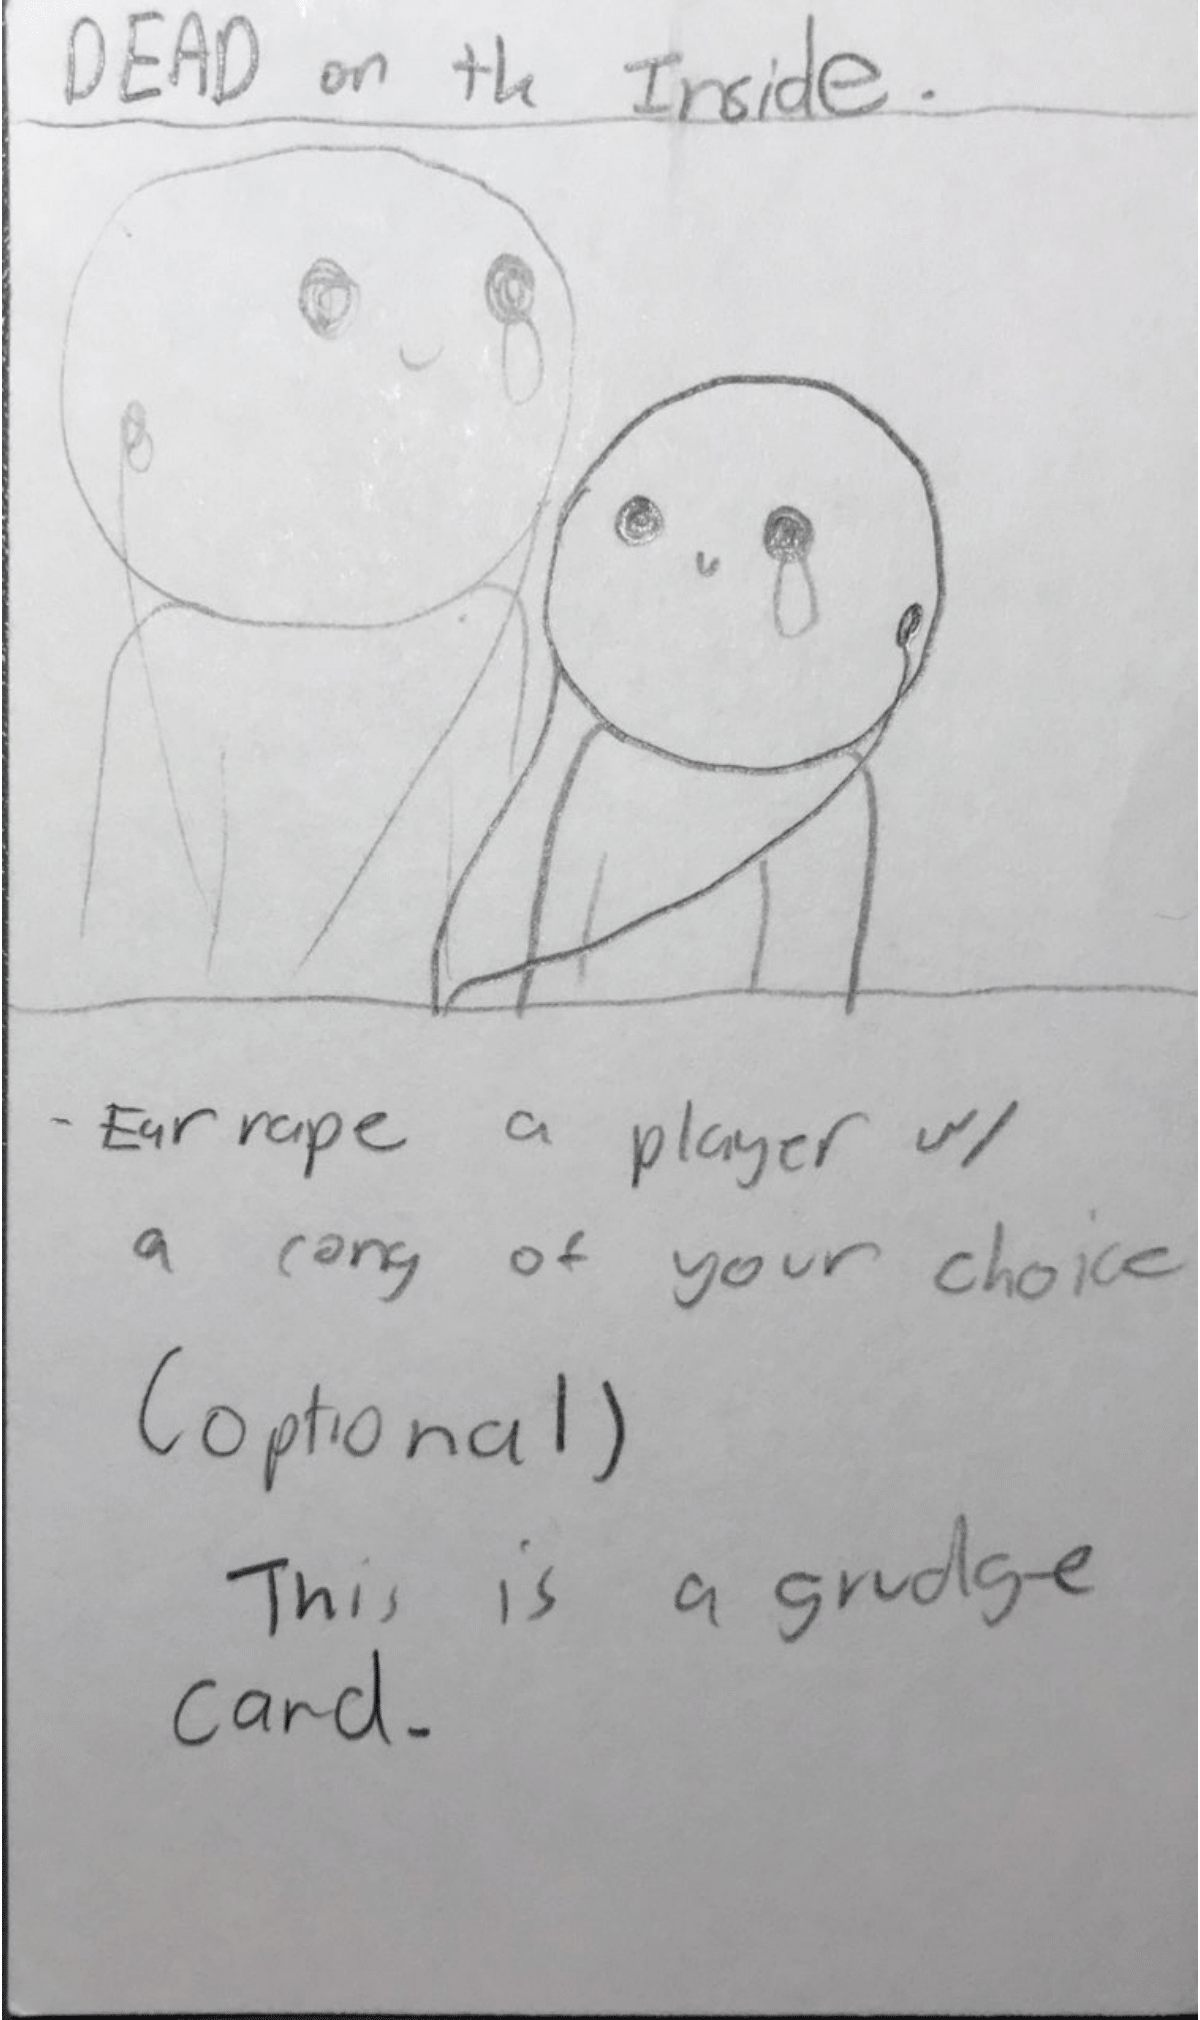 DEAD on the Inside.
- Ear rape a player w/
a song of your choice
(optional)
This is a grudge
card.